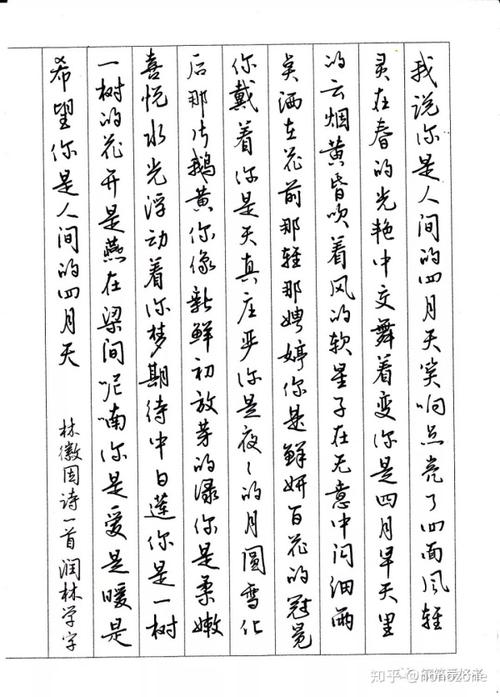 我说你是人间的四月天笑响点亮了四面风轻
灵在春的光艳中交舞着变你是四月早天里
的云烟黄昏吹着风的软星子在无意中闪细雨
点洒在花前那轻那娉婷你是鲜妍百花的冠冕
你戴着你是天真庄严你是夜々的月圆雪化
后那片鹅黄你像新鲜初放芽的绿你是柔嫩
喜悦水光浮动着你梦期待中白莲你是一树
一树的花开是燕在梁间呢喃你是爱是暖是
希望你是人间的四月天
林徽因诗一首润林学字
知乎 @nonozone